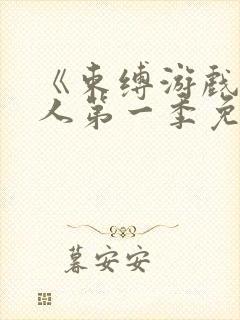 《束缚游戏
人第一季免
暮安安